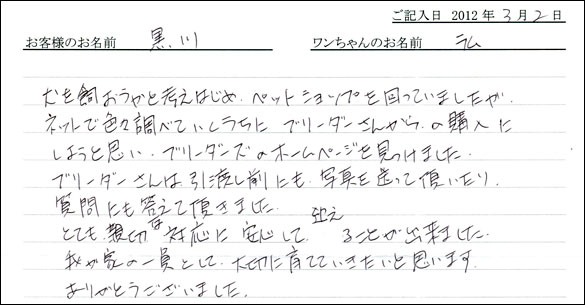 ご記入日 2012 年 3 月 2 日
お客様のお名前 黒川 ワンちゃんのお名前 ラム
犬を飼おうかと考えはじめ、ペットショップを回っていましたが、
ネットで色々調べていくうちに ブリーダーさんから の購入に
しようと思い、ブリーダーズのホームページを見つけました。
ブリーダーさんは引渡し前にも、写真を送って頂いたり、
質問にも答えて頂きました。
とても親切な対応に安心して、迎えることが出来ました。
我が家の一員として、大切に育てていきたいと思います。
ありがとうございました。